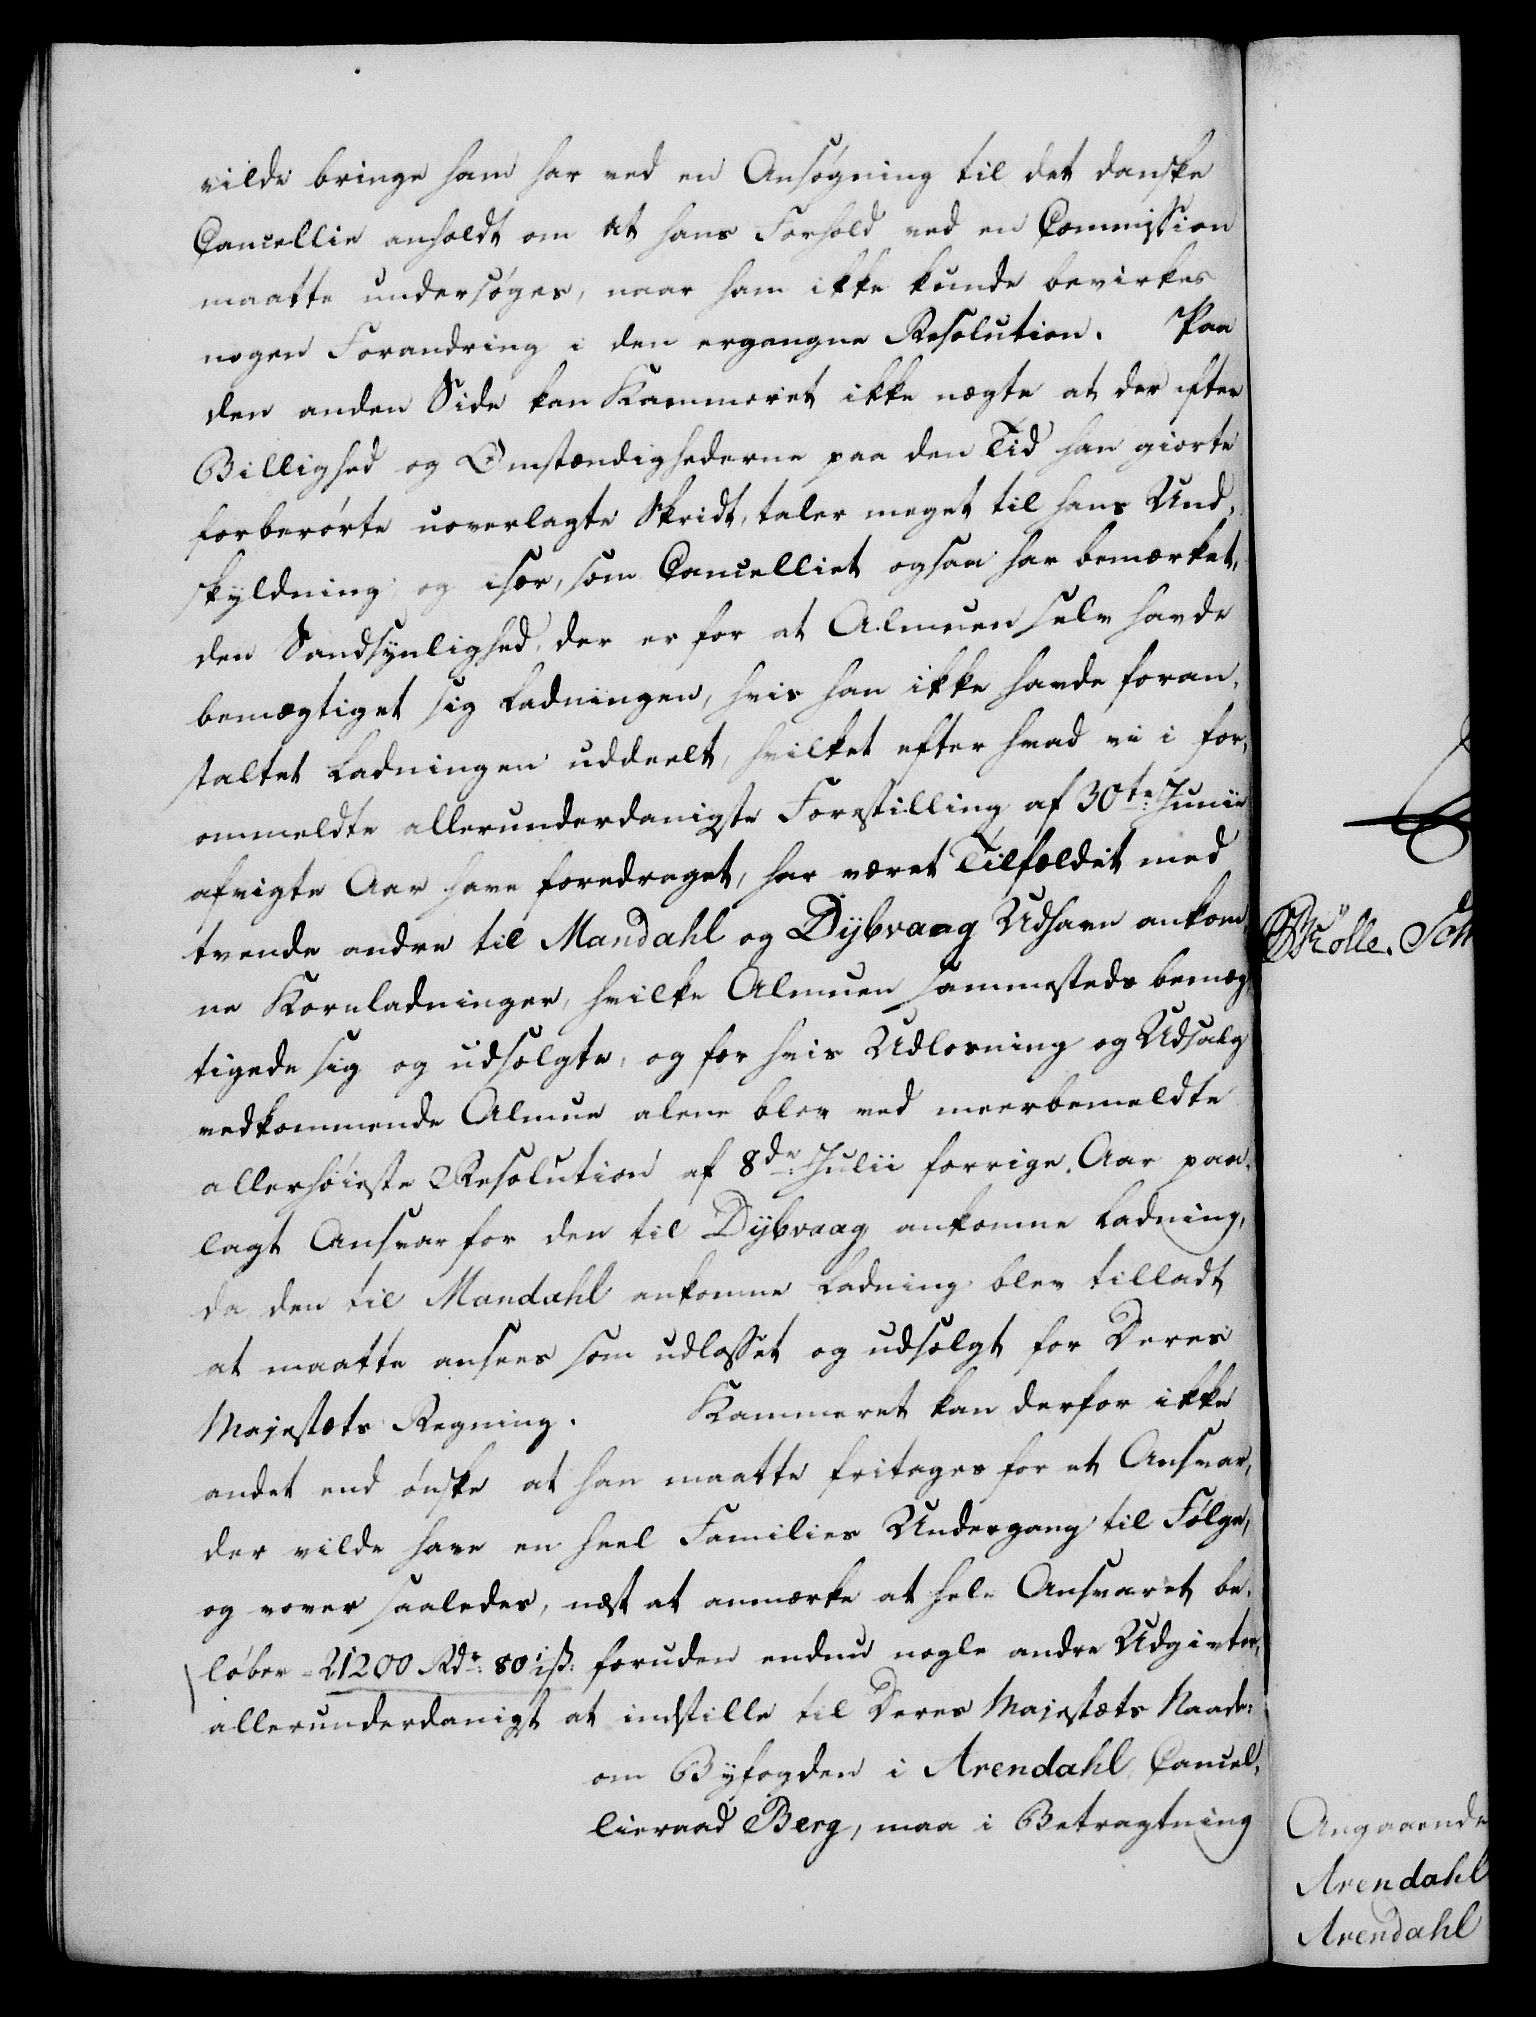 vilde bringe ham har ved en Ansøgning til det danske
Cancellie anholdt om at hans Forhold ved en Commission
maatte undersøges, naar ham ikke kunde bevirkes
nogen Forandring i den ergangne Resolution. Paa
den anden Side kan Kammeret ikke nægte at der efter
Billighed og Omstændighederne paa den Tid han giorte
forberørte uoverlagte Skridt, taler meget til hans Und,
skyldning, og især, som Cancelliet ogsaa har bemærket,
den Sandsynlighed, der er for at Almuen selv havde
bemægtiget sig Ladningen, hvis han ikke havde foran,
staltet Ladningen uddeelt, hvilket efter hvad vi i for,
ommeldte allerunderdanigste Forestilling af 30te Junii
afvigte Aar have foredraget, har været Tilfældet med
tvende andre til Mandahl og Dybvaag Udhavn ankom
ne Kornladninger, hvilke Almuen sammesteds bemæg,
tigede sig og udsolgte, og for hvis Udlosning og Udsalg
vedkommende Almue alene blev ved meerbemeldte
allerhøieste Resolution af 8de Julii forrige Aar paa,
lagt Ansvar for den til Dybvaag ankomne Ladning,
da den til Mandahl ankomne Ladning blev tilladt
at maatte ansees som udlosset og udsolgt for Deres
Majestæts Regning. Kammeret kan derfor ikke
andet end ønske at han maatte fritages for et Ansvar,
der vilde have en heel Families Undergang til Følge,
og vover saaledes, næst at anmærke at hele Ansvaret be,
løber 21200 Rdr: 80 1/2 ß: foruden endnu nogle andre Udgivter,
allerunderdanigt at indstille til Deres Majestæts Naade:
om Byfogden i Arendahl Cancel,
lieraad Berg, maa i Betragtning
Wölle. Sch
Angaaende
Arendahl
Arendahl